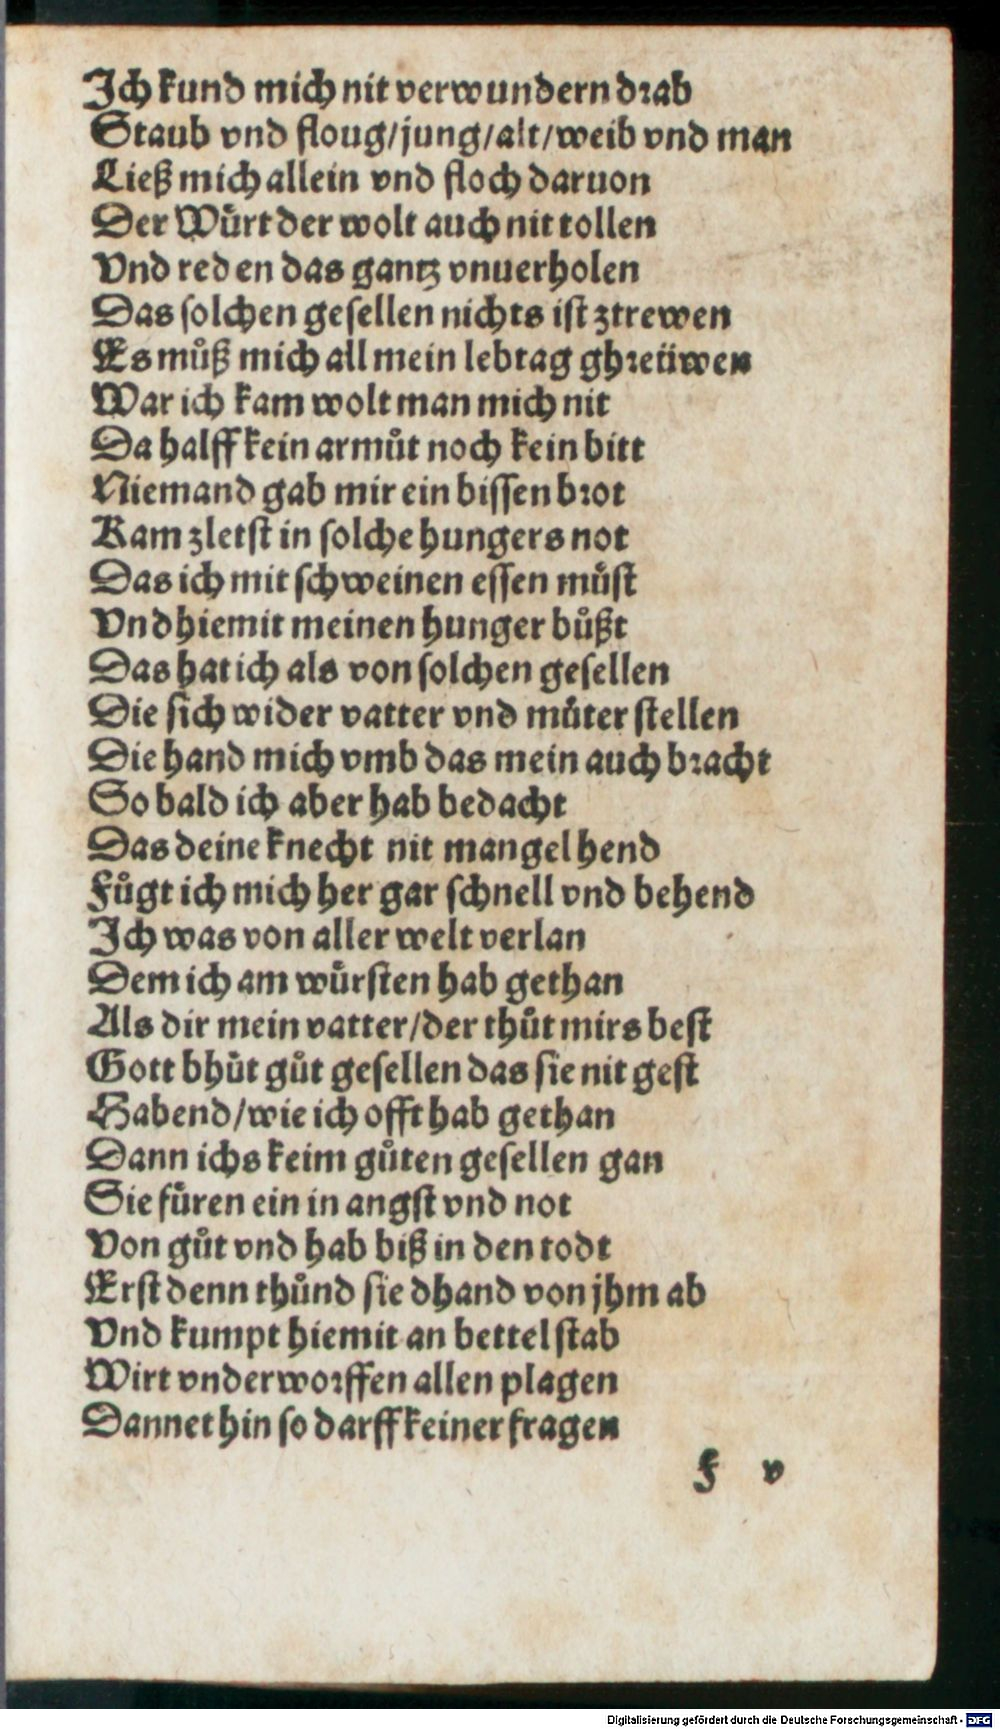 Ich kund mich nit verwundern drab
Staub vnd floug/jung/alt/weib vnd man
Ließ mich allein vnd floch daruon
Der Wuͤrt der wolt auch nit tollen
Vnd reden das gantz vnuerholen
Das solchen gesellen nichts ist ztrewen
Es muͦß mich all mein lebtag ghreüwen
War ich kam wolt man mich nit
Da halff kein armuͦt noch kein bitt
Niemand gab mir ein bissen brot
Kam zletst in solche hungers not
Das ich mit schweinen essen muͤst
Vnd hiemit meinen hunger buͤßt
Das hat ich als von solchen gesellen
Die sich wider vatter vnd muͦter stellen
Die hand mich vmb das mein auch bracht
So bald ich aber hab bedacht
Das deine knecht nit mangel hend
Fuͦgt ich mich her gar schnell vnd behend
Ich was von aller welt verlan
Dem ich am wuͤrsten hab gethan
Als dir mein vatter/der thuͦt mirs best
Gott bhuͤt guͦt gesellen das sie nit gest
Habend/wie ich offt hab gethan
Dann ichs keim guͦten gesellen gan
Sie fuͤren ein in angst vnd not
Von guͦt vnd hab biß in den todt
Erst denn thuͦnd sie dhand von jhm ab
Vnd kumpt hiemit an bettel stab
Wirt vnderworffen allen plagen
Dannethin so darff keiner fragen
F v
Digitalisierung gefördert durch die Deutsche Forschungsgemeinschaft - DFG